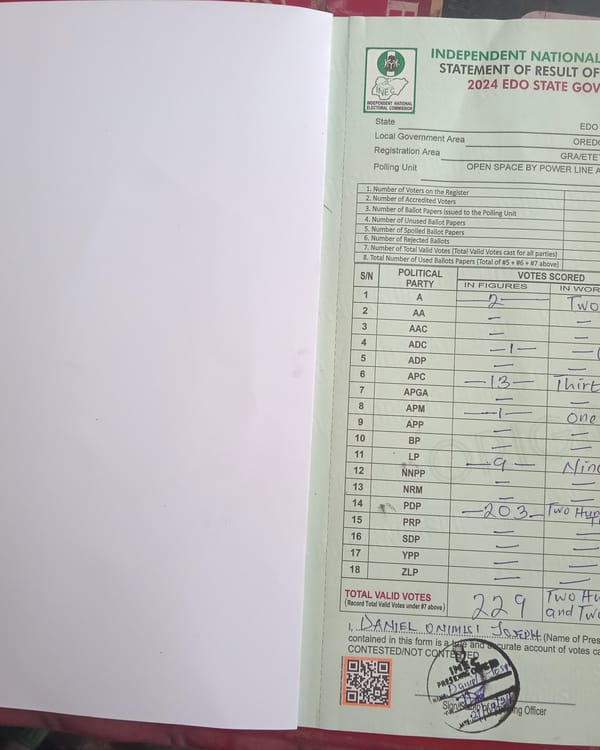 INDEPENDENT NATIONAL
STATEMENT OF RESULT OF
2024 EDO STATE GOV
INEC
INDEPENDENT NATIONAL
ELECTORAL COMMISSION
State EDO
Local Government Area OREDO
Registration Area GRA/ETE
Polling Unit OPEN SPACE BY POWER LINE A
1. Number of Voters on the Register
2. Number of Accredited Voters
3. Number of Ballot Papers Issued to the Polling Unit
4. Number of Unused Ballot Papers
5. Number of Spoiled Ballot Papers
6. Number of Rejected Ballots
7. Number of Total Valid Votes (Total Valid Votes cast for all parties)
8. Total Number of Used Ballots Papers (Total of #5 + #6 + #7 above)
S/N POLITICAL PARTY VOTES SCORED
IN FIGURES IN WOR
1 A 2 Two
2 AA —
3 AAC — —
4 ADC —1—
5 ADP — —
6 APC —13— Thirt
7 APGA — —
8 APM —1— One
9 APP — —
10 BP — —
11 LP —9— Nine
12 NNPP — —
13 NRM — —
14 PDP —203— Two Hun
15 PRP — —
16 SDP — —
17 YPP — —
18 ZLP — —
TOTAL VALID VOTES 229 Two Hu
(Record Total Valid Votes under #7 above) and Twe
I, DANIEL ONIMISI JOSEPH (Name of Pres
contained in this form is a true and accurate account of votes ca
CONTESTED/NOT CONTESTED
INEC
Officer